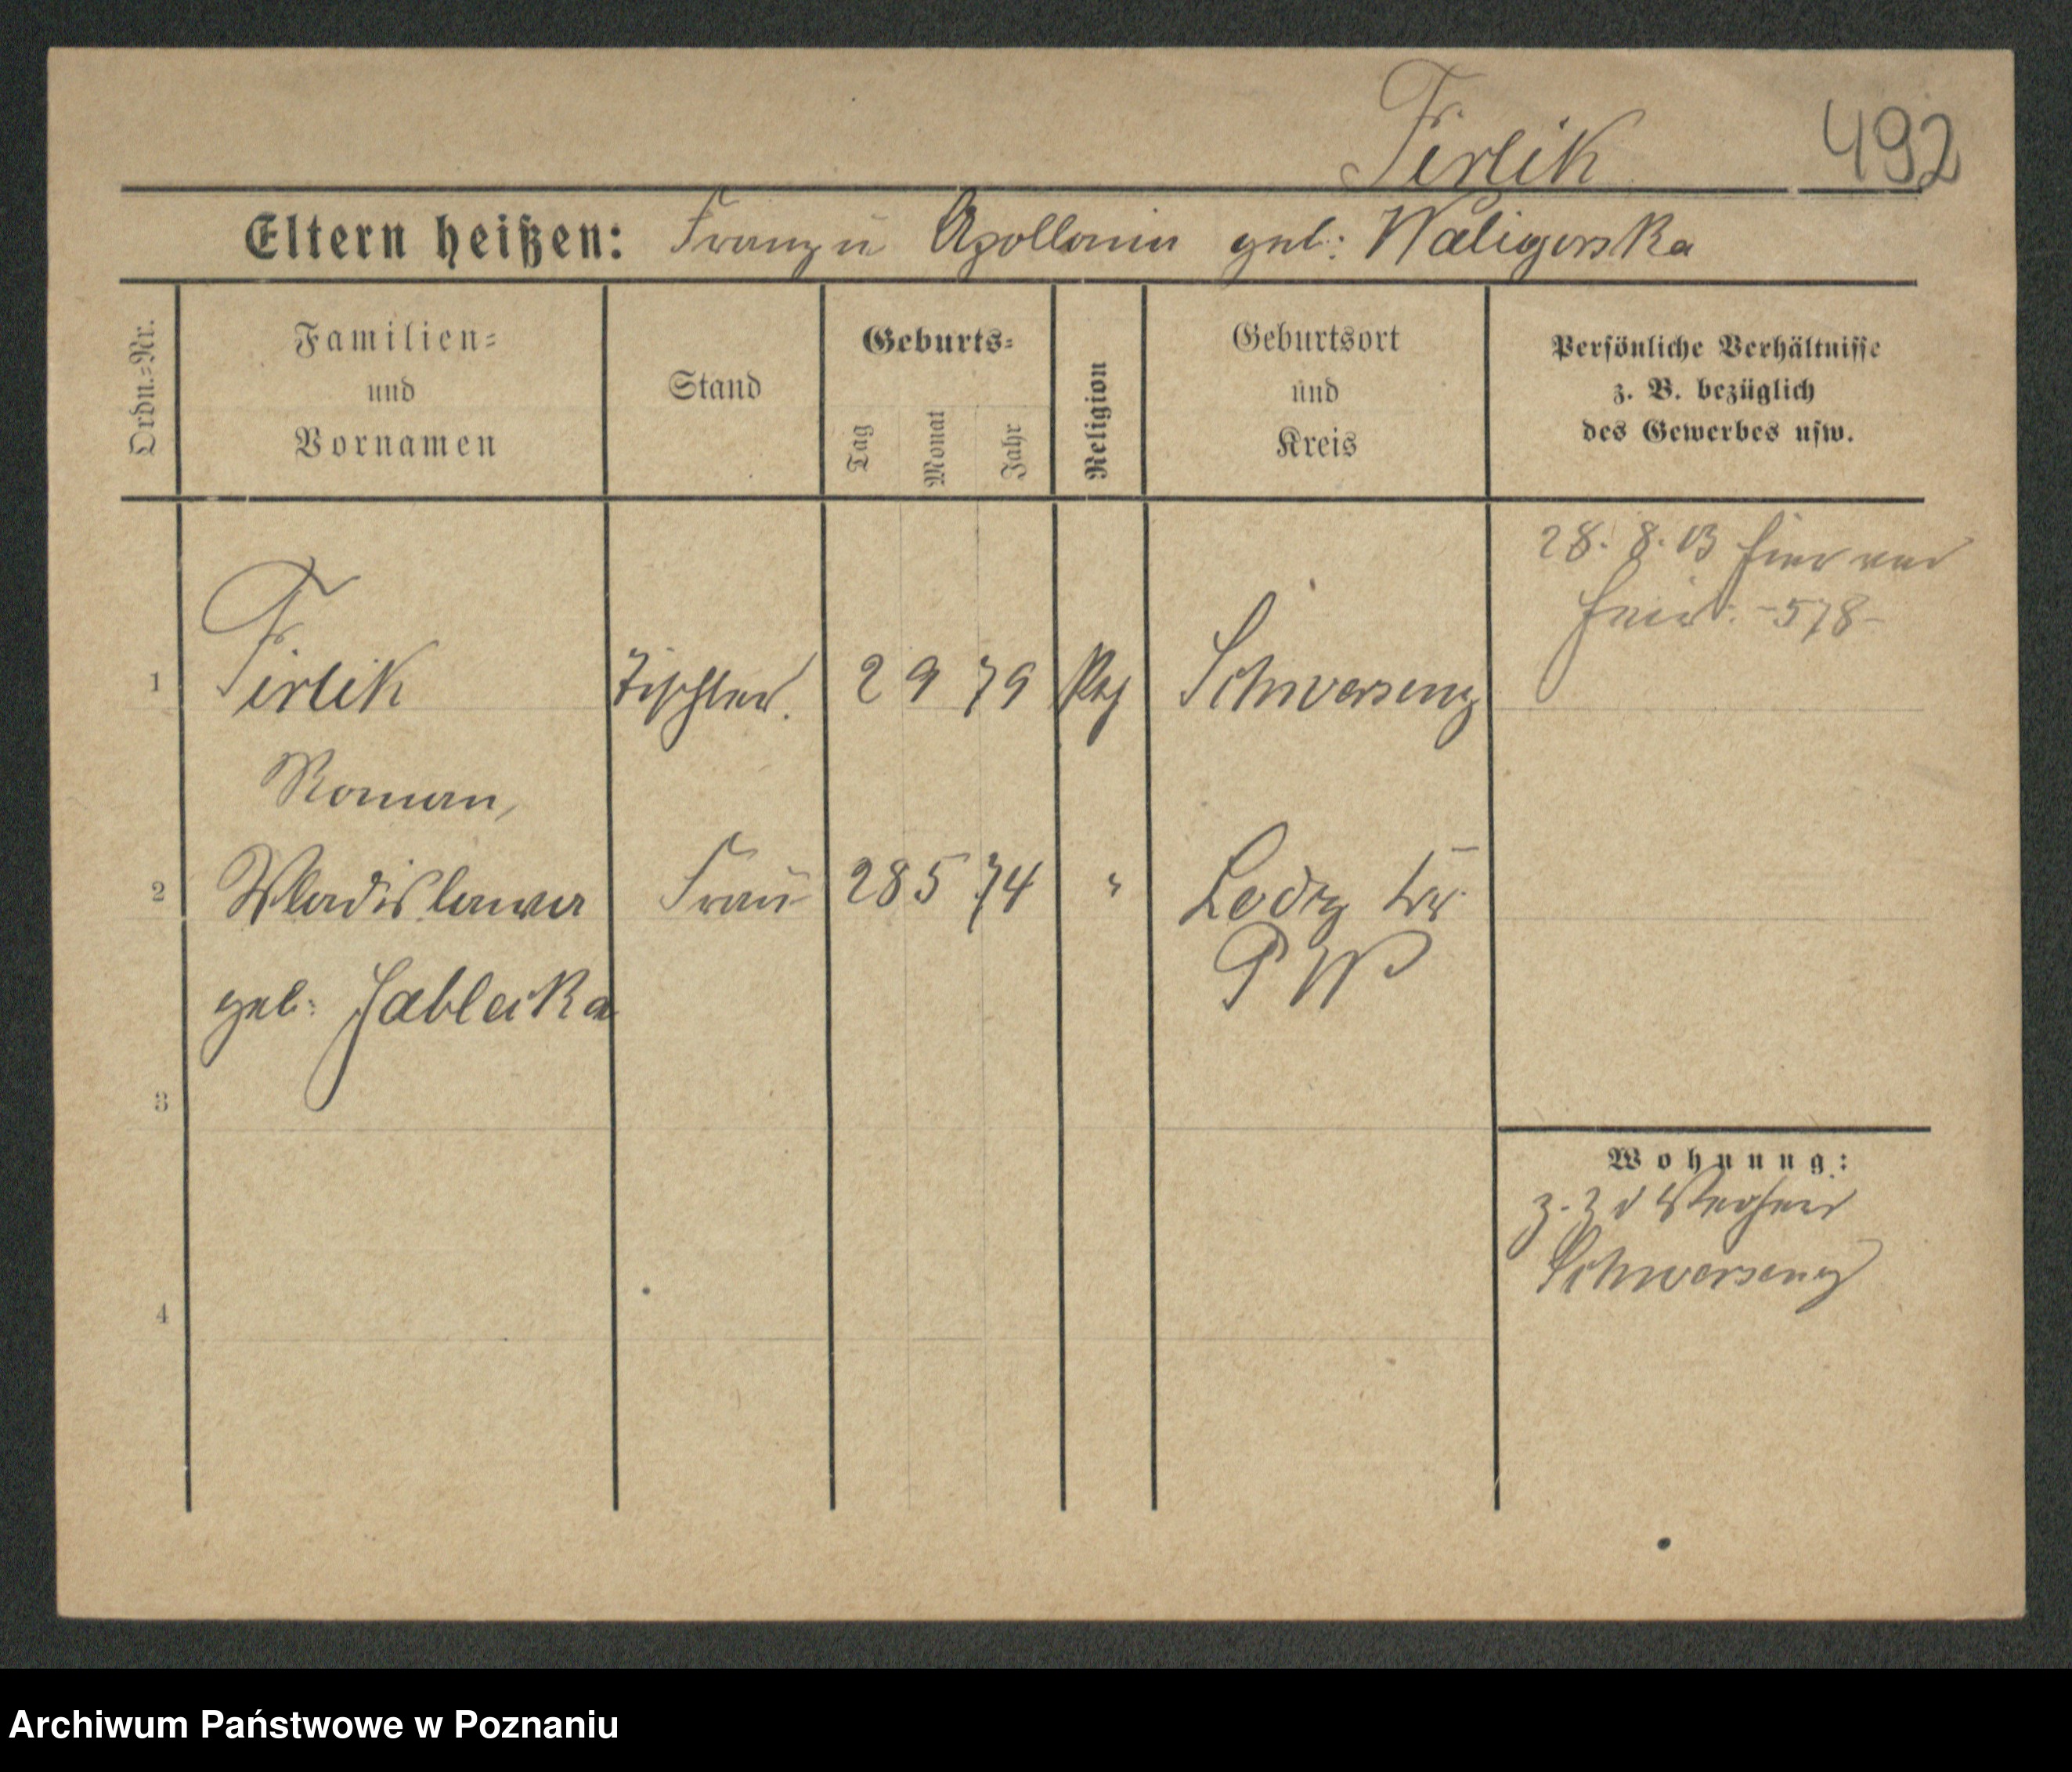 Firlik 492
Eltern heißen: Franz u Apollonia geb: Waligorska
Ordn.=Nr.
Familien= und Vornamen
Stand
Geburts=
Tag Monat Jahr
Religion
Geburtsort und Kreis
Persönliche Verhältnisse
z. B. bezüglich
des Gewerbes usw.
28. 8. 13 hier
578
1 Firlik Tischler. 2 9 79 Schwersenz
Roman,
2 Wladislawa Frau 28 5 74 " Lodz
geb: Jableika
3
4
Wohnung:
z. Z
Schwersenz
Archiwum Państwowe w Poznaniu